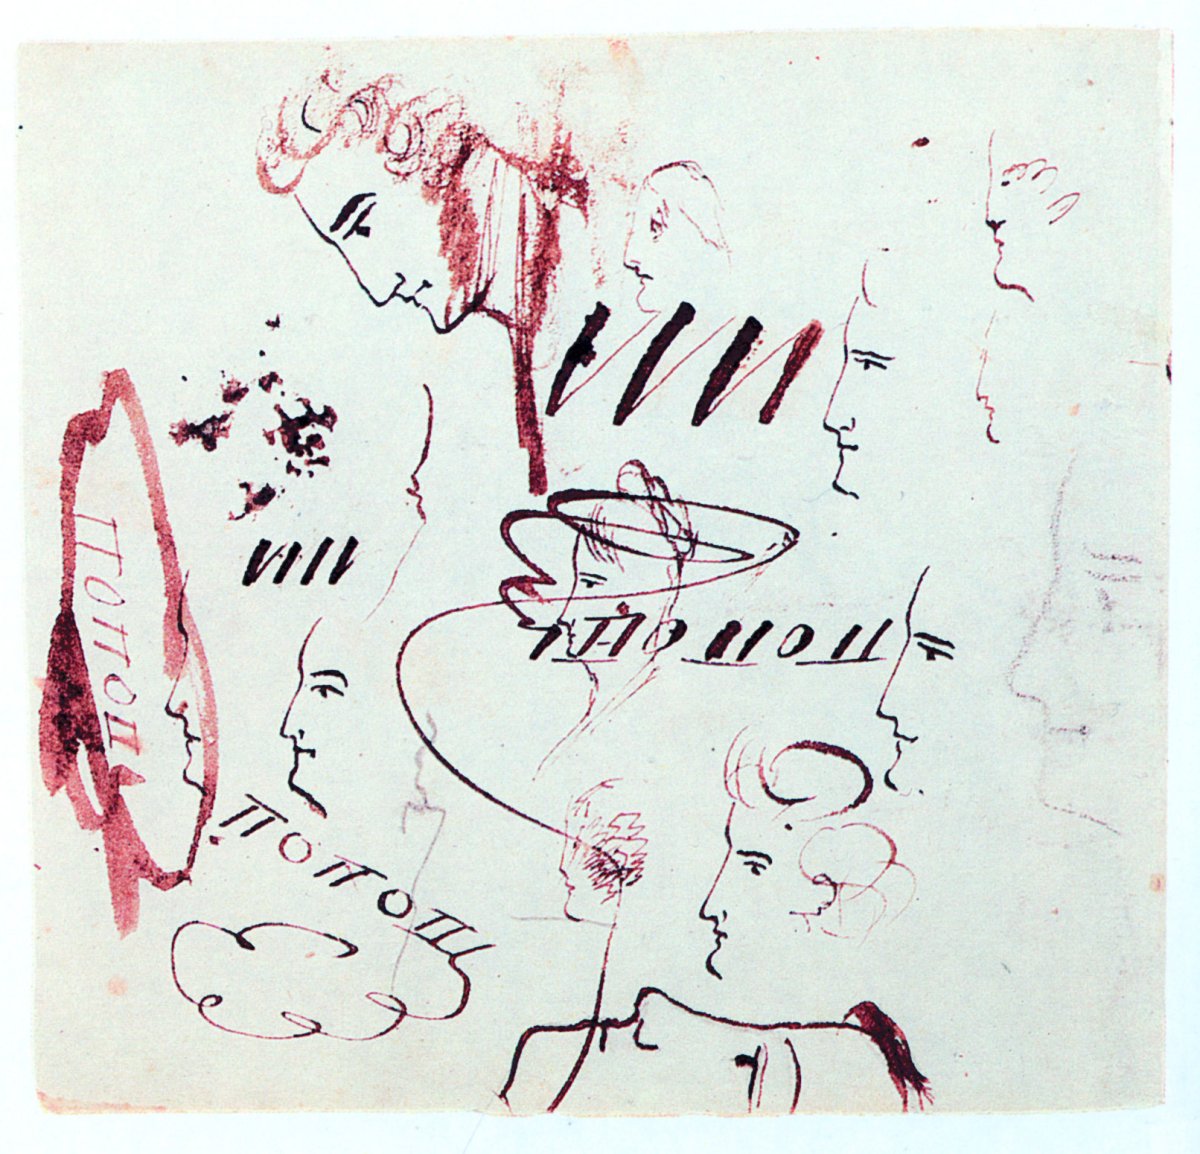 ПОПОП
ПОПОП
ПОПОП